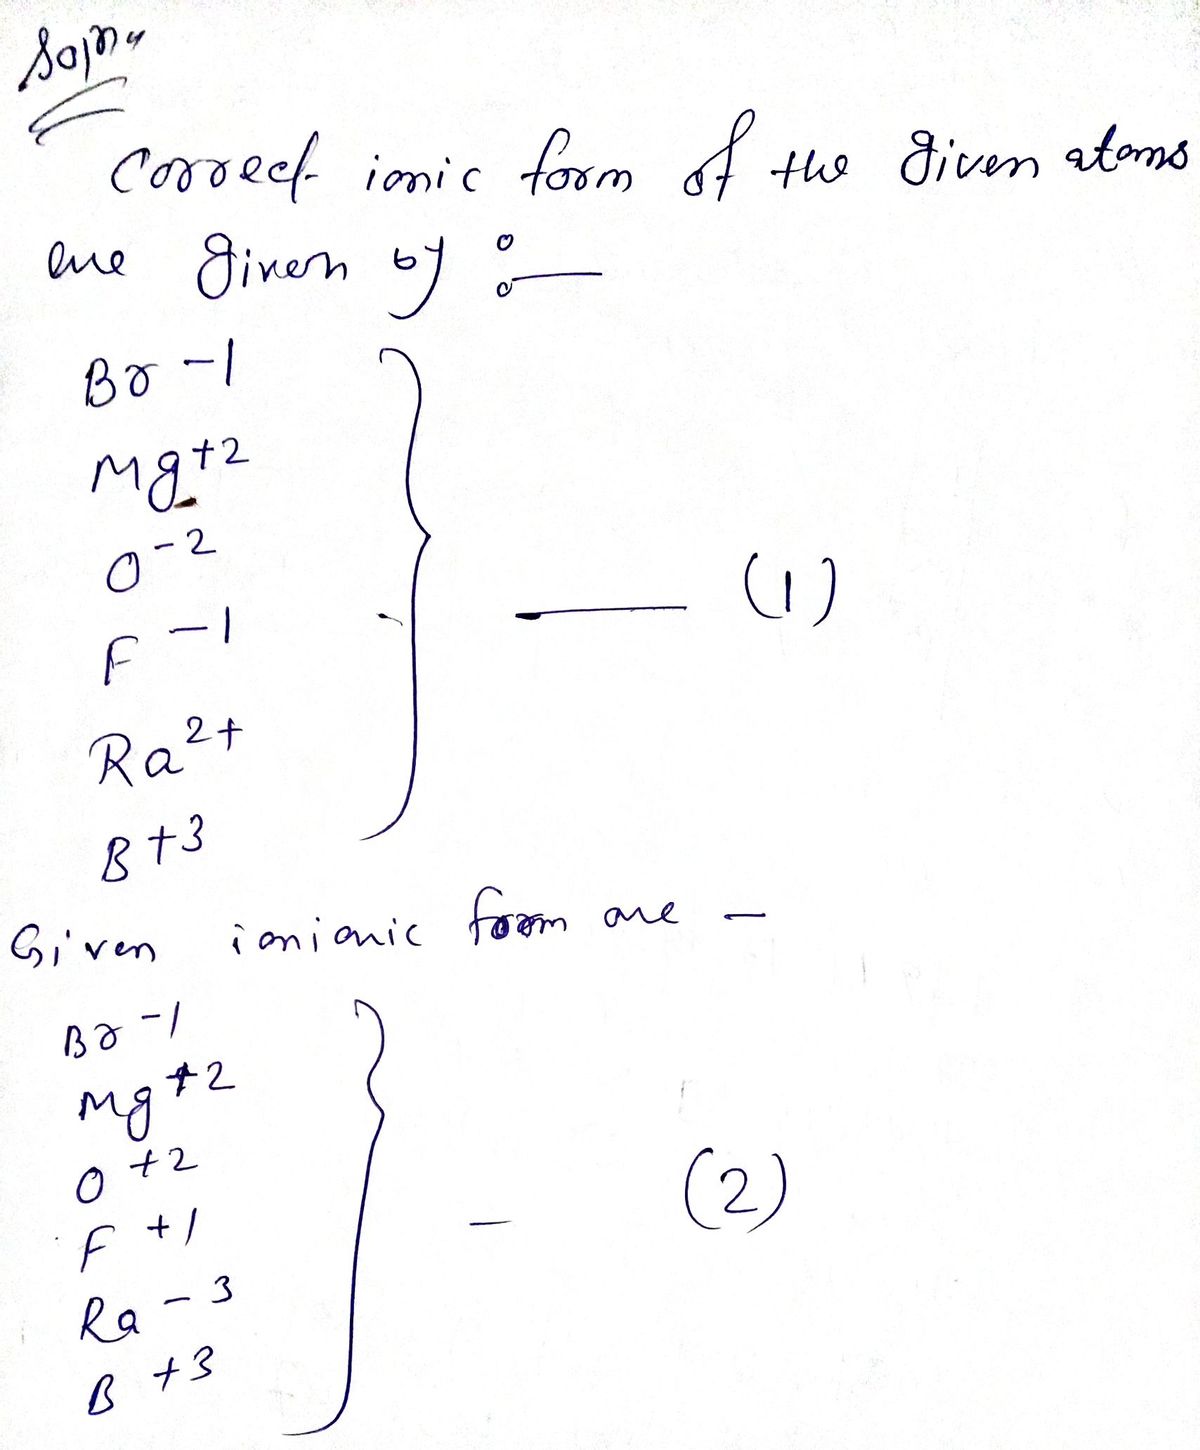 Soln
Correct ionic form of the given atoms
are given by :—
Br -1
Mg+2
O-2
F -1
— (1)
Ra2+
B+3
Given ionionic form are —
Br -1
Mg+2
O +2
F +1
— (2)
Ra -3
B +3